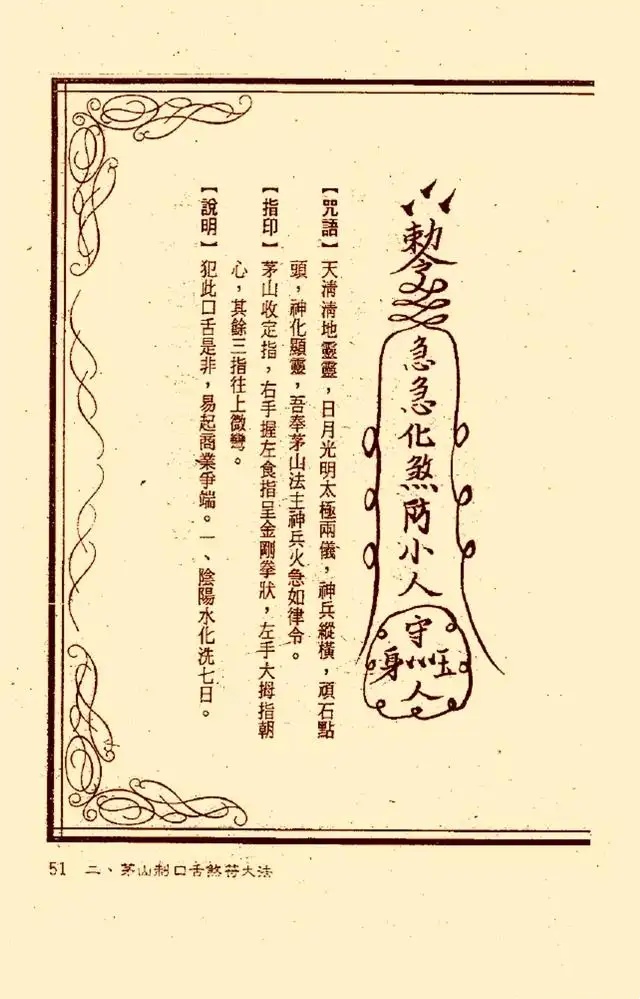 勅令
急急化煞防小人
守
身 玉
人
【咒語】天清清地靈靈，日月光明太極兩儀，神兵縱橫，頑石點
頭，神化顯靈，吾奉茅山法主神兵火急如律令。
【指印】茅山收定指，右手握左食指呈金剛拳狀，左手大拇指朝
心，其餘三指往上微彎。
【說明】犯此口舌是非，易起商業爭端。一、陰陽水化洗七日。
51 二、茅山制口舌煞符大法